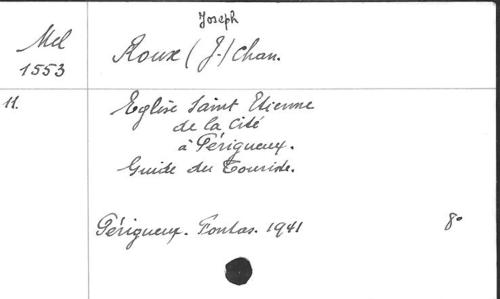 Joseph
Mel
1553
Roux (J.) Chan.
11.
Eglise Saint Etienne
de la Cité
à Périgueux.
Guide du Touriste.
Périgueux. Fontas. 1941
8°